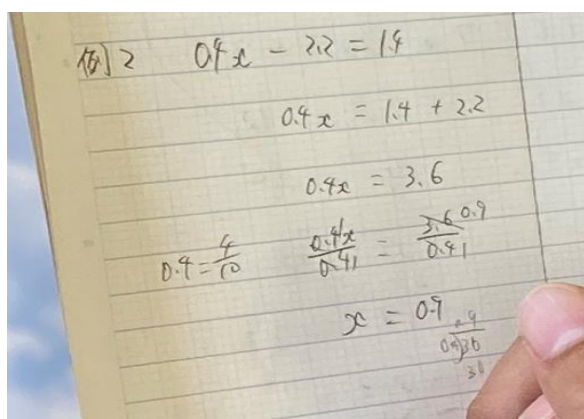 例2 0.4x - 2.2 = 1.4
0.4x = 1.4 + 2.2
0.4x = 3.6
0.4 = 4/10 0.4x/0.4 1 = 3.6/0.4 0.9 1
x = 0.9
.9
0.4)36
36